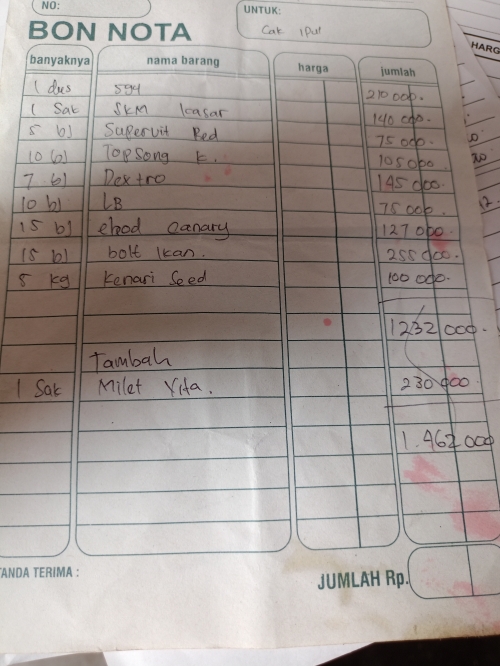 NO:
UNTUK:
Cak Ipul
BON NOTA
banyaknya nama barang harga jumlah
1 dus 594 210 000.
1 Sak SKM kasar 140 000.
5 bj Supervit Red 75 000.
10 bj TopSong k. 105 000
7 bj Dextro 145 000.
10 bj LB 75 000.
15 bj ebod canary 127 000.
15 bj bolt Ikan. 255 000.
5 kg kenari Seed 100 000.
1232 000.
Tambah
1 Sak Milet Vita. 230 000.
1.462 000
TANDA TERIMA :
JUMLAH Rp.
HARG